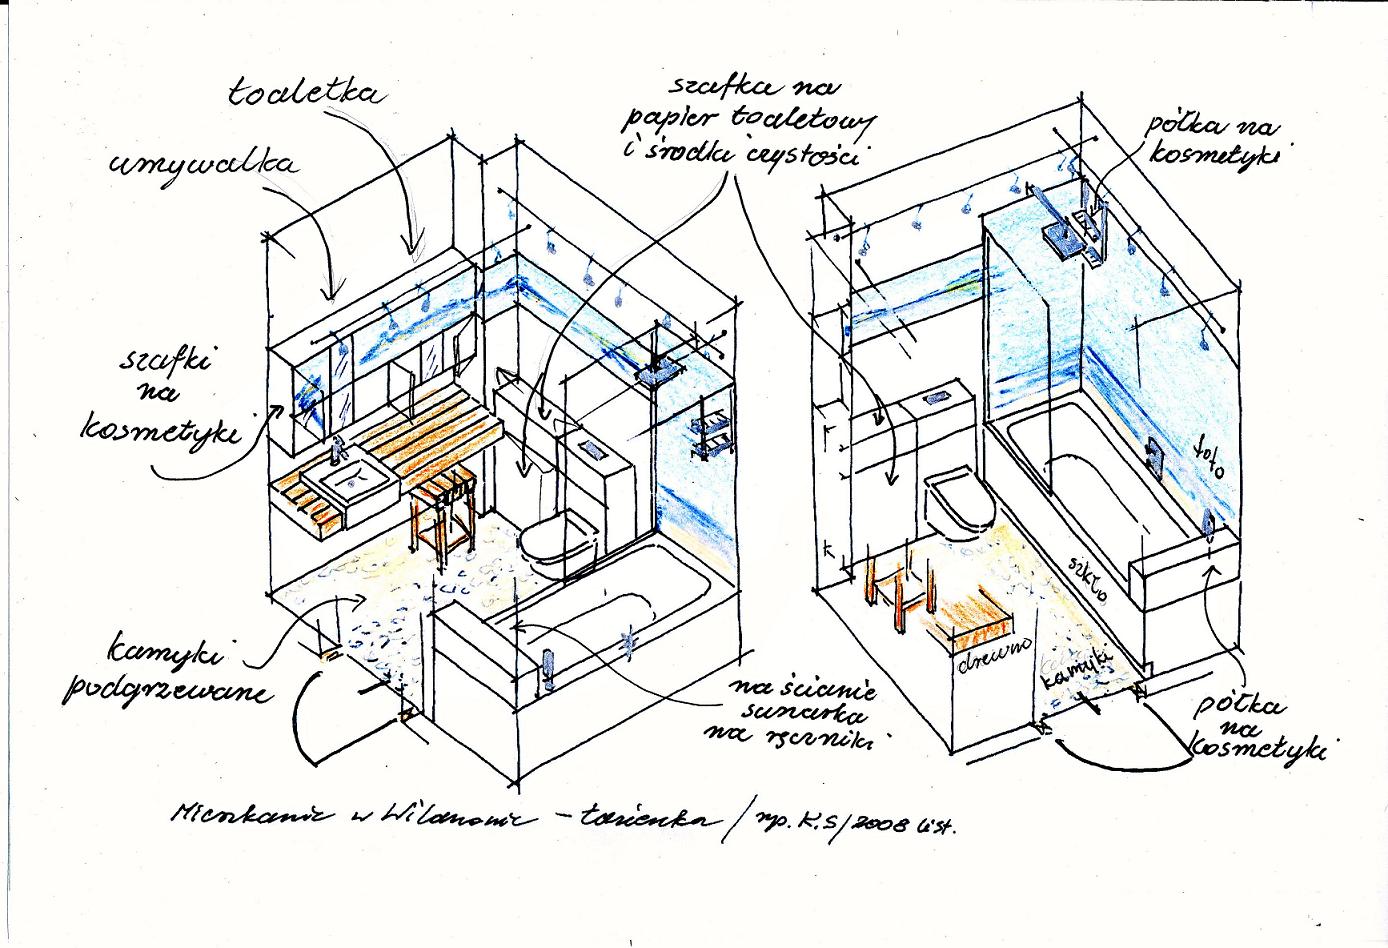 toaletka
umywalka
szafki
na
kosmetyki
kamyki
podgrzewane
szafka na
papier toaletowy
i środki czystości
półka na
kosmetyki
foto
szkło
drewno
kamyki
na ścianie
sunarka
na ręczniki
półka
na
kosmetyki
Mieszkanie w Wilanowie - łazienka / rys. K.S/2008 list.